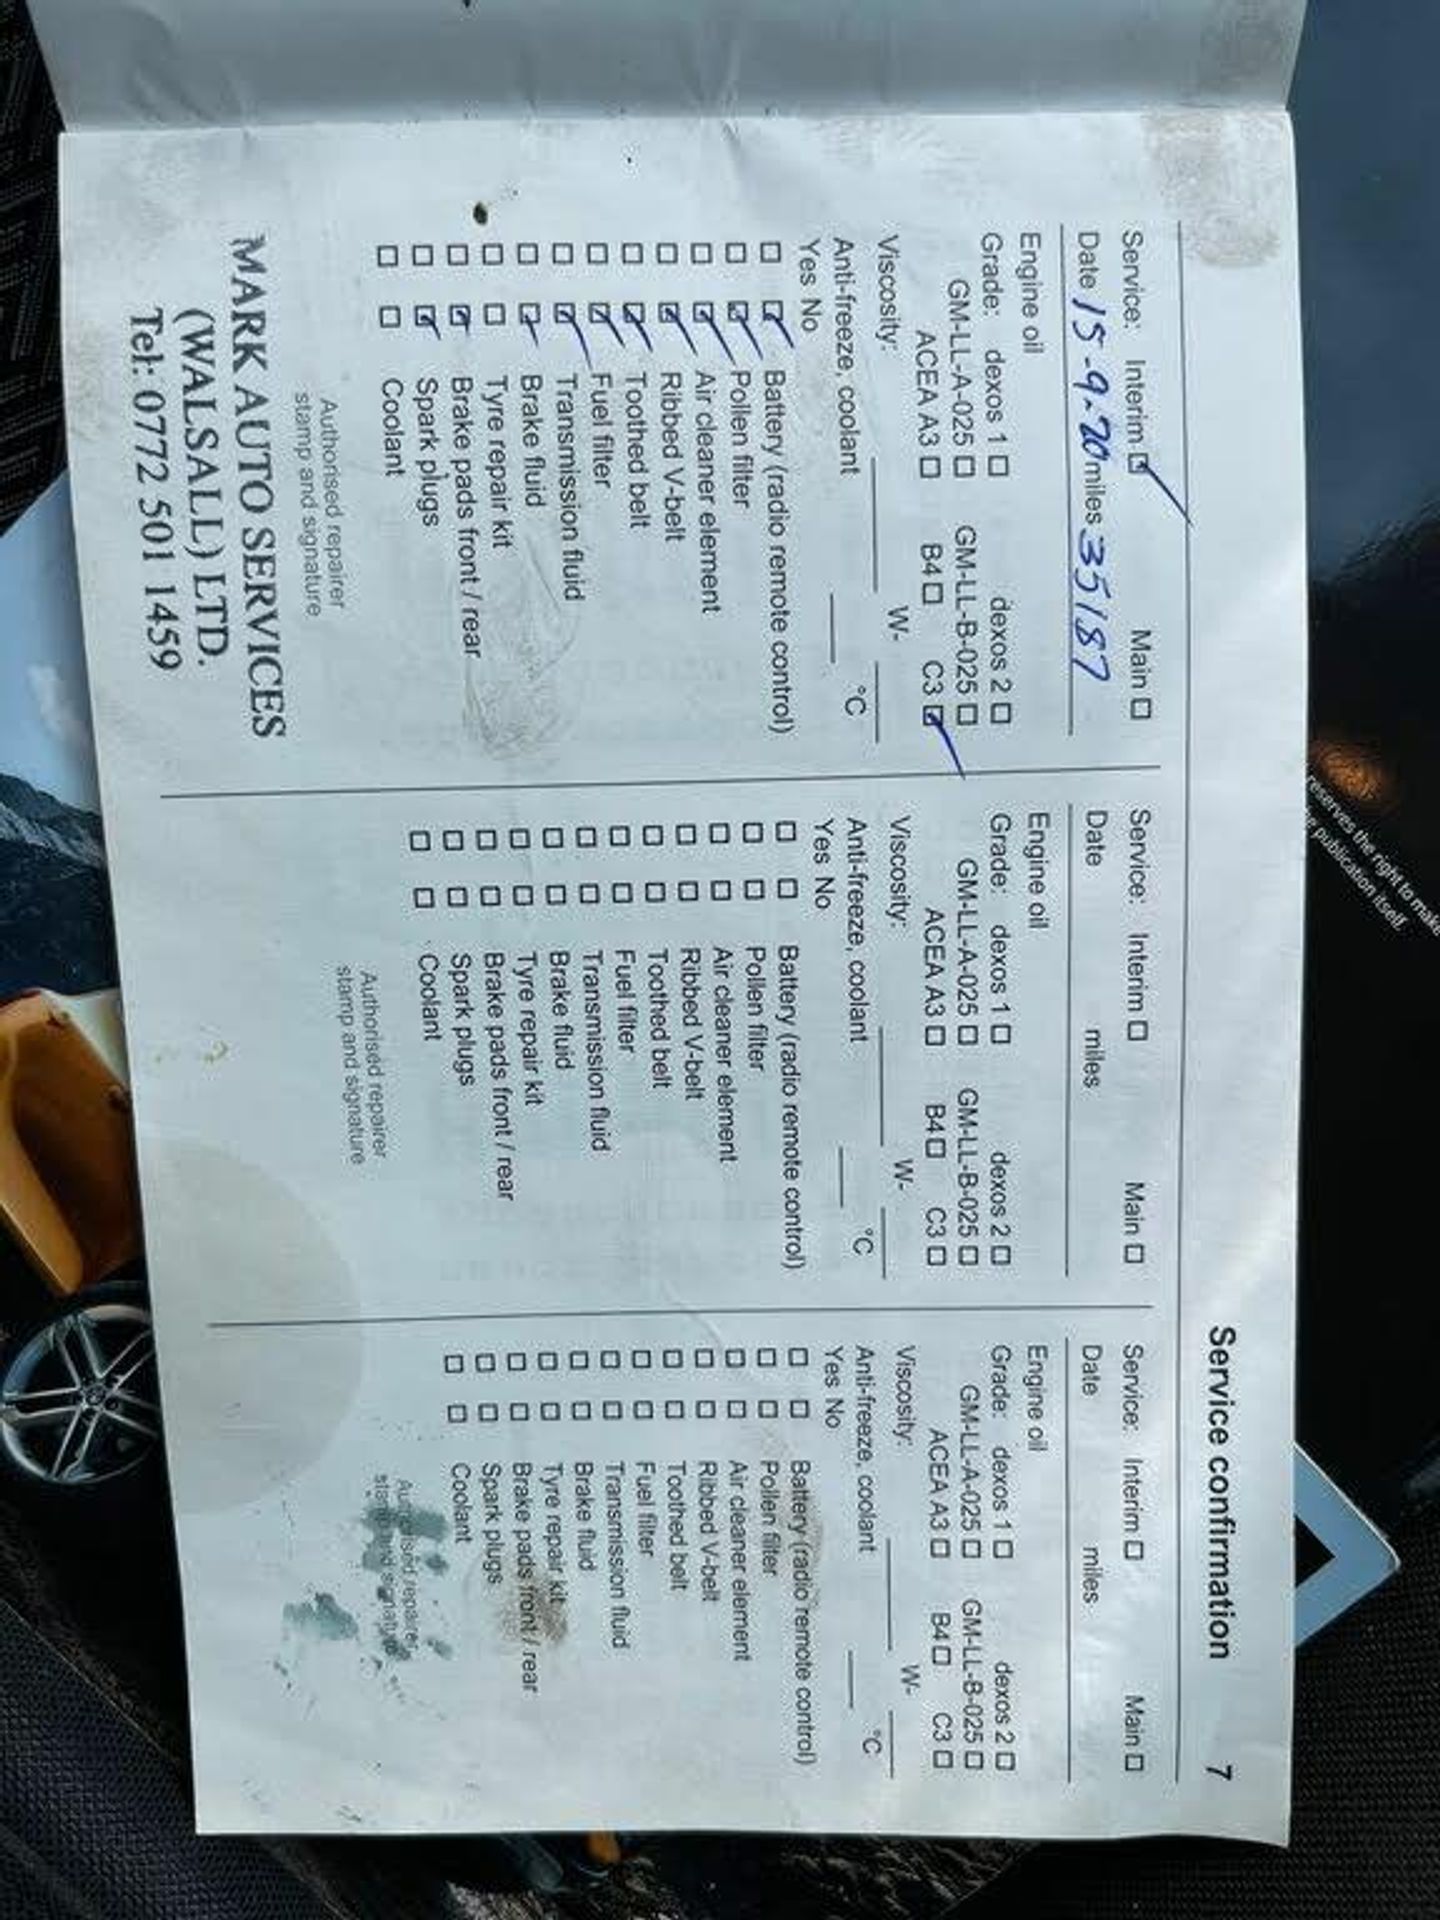 Service confirmation 7
Service: Interim ☑ Main ☐
Date 15-9-20 miles 35187
Engine oil
Grade: dexos 1 ☐ dexos 2 ☐
GM-LL-A-025 ☐ GM-LL-B-025 ☐
ACEA A3 ☐ B4 ☐ C3 ☑
Viscosity: W-
Anti-freeze, coolant °C
Yes No
☐ ☑ Battery (radio remote control)
☐ ☑ Pollen filter
☐ ☑ Air cleaner element
☐ ☑ Ribbed V-belt
☐ ☑ Toothed belt
☐ ☑ Fuel filter
☐ ☑ Transmission fluid
☐ ☑ Brake fluid
☐ ☐ Tyre repair kit
☐ ☑ Brake pads front / rear
☐ ☑ Spark plugs
☐ ☐ Coolant
Authorised repairer
stamp and signature
MARK AUTO SERVICES
(WALSALL) LTD.
Tel: 0772 501 1459
Service: Interim ☐ Main ☐
Date miles
Engine oil
Grade: dexos 1 ☐ dexos 2 ☐
GM-LL-A-025 ☐ GM-LL-B-025 ☐
ACEA A3 ☐ B4 ☐ C3 ☐
Viscosity: W-
Anti-freeze, coolant °C
Yes No
☐ ☐ Battery (radio remote control)
☐ ☐ Pollen filter
☐ ☐ Air cleaner element
☐ ☐ Ribbed V-belt
☐ ☐ Toothed belt
☐ ☐ Fuel filter
☐ ☐ Transmission fluid
☐ ☐ Brake fluid
☐ ☐ Tyre repair kit
☐ ☐ Brake pads front / rear
☐ ☐ Spark plugs
☐ ☐ Coolant
Authorised repairer
stamp and signature
Service: Interim ☐ Main ☐
Date miles
Engine oil
Grade: dexos 1 ☐ dexos 2 ☐
GM-LL-A-025 ☐ GM-LL-B-025 ☐
ACEA A3 ☐ B4 ☐ C3 ☐
Viscosity: W-
Anti-freeze, coolant °C
Yes No
☐ ☐ Battery (radio remote control)
☐ ☐ Pollen filter
☐ ☐ Air cleaner element
☐ ☐ Ribbed V-belt
☐ ☐ Toothed belt
☐ ☐ Fuel filter
☐ ☐ Transmission fluid
☐ ☐ Brake fluid
☐ ☐ Tyre repair kit
☐ ☐ Brake pads front / rear
☐ ☐ Spark plugs
☐ ☐ Coolant
Authorised repairer
stamp and signature
reserves the right to make
publication itself.